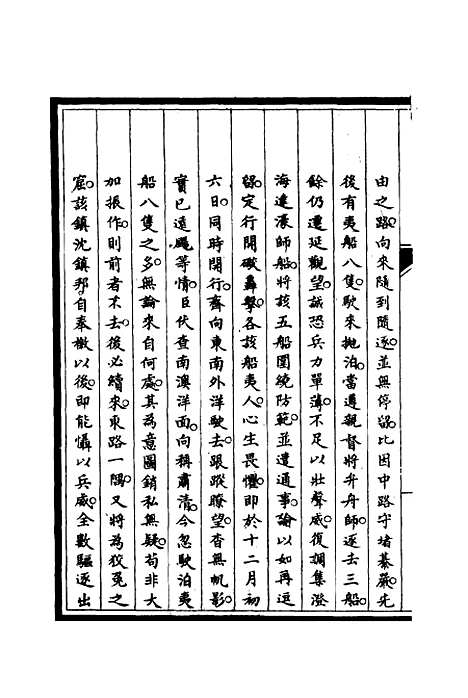 由之路。向來隨到隨逐。並無停留。比因中路守堵綦嚴。先
後有夷船八隻。駛來拋泊。當遴親督將弁舟師。逐去三船。
餘仍遷延觀望。誠恐兵力單薄。不足以壯聲威。復調集澄
海達濠師船。將該五船圍繞防範。並遣通事。諭以如再逗
留。定行開礮轟擊。各該船夷人。心生畏懼。即於十二月初
六日。同時開行。齊向東南外洋駛去。跟蹤瞭望。杳無帆影。
實已遠颺等情。臣伏查南澳洋面。向稱肅清。今忽駛泊夷
船八隻之多。無論來自何處。其為意圖銷私無疑。苟非大
加振作。則前者未去。後必續來。東路一隅。又將為狡兔之
窟。該鎮沈鎮邦自奉檄以後。即能懾以兵威。全數驅逐出